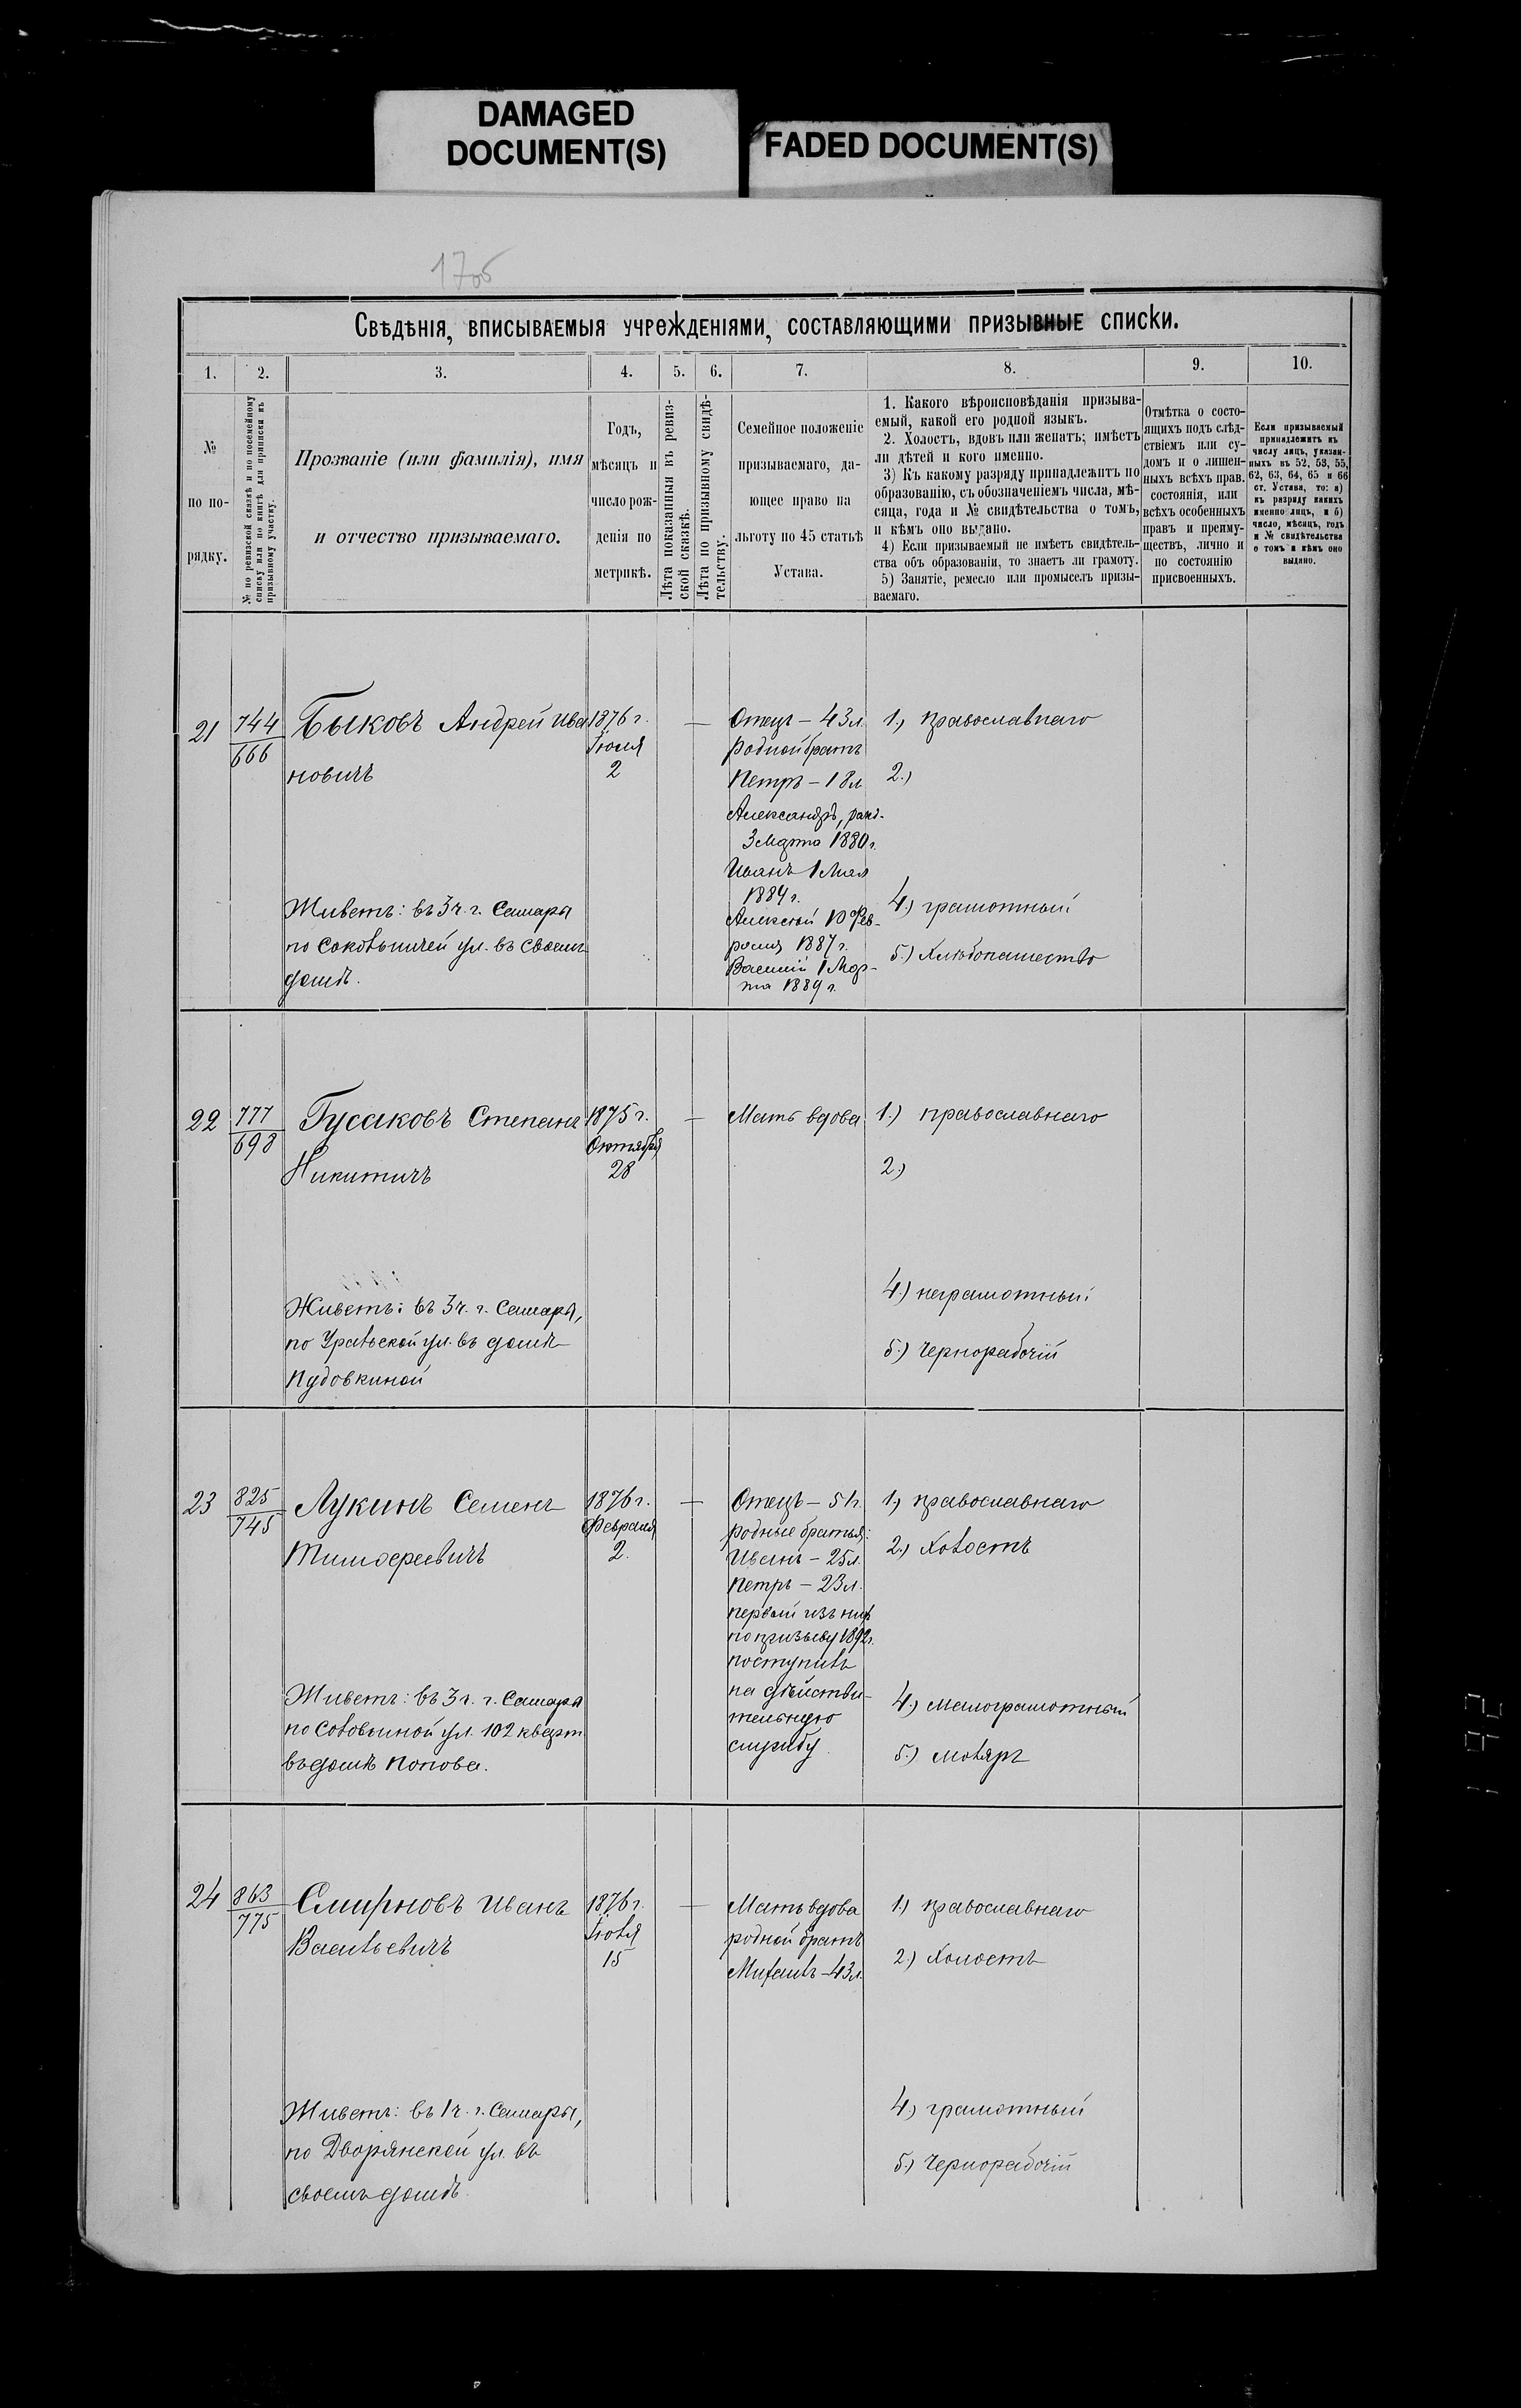 DAMAGED
DOCUMENT(S)
FADED DOCUMENT(S)
Свѣдѣнія, вписываемыя учрежденіями, составляющими призывные списки.
1.
2.
3.
4.
5.
6.
7.
8.
9.
10.
№
по по-
рядку.
№ по ревизской сказкѣ и по посемейному
списку или по книгѣ для приписки къ
призывному участку.
Прозваніе (или фамилія), имя
и отчество призываемаго.
Годъ,
мѣсяцъ и
число рож-
денія по
метрикѣ.
Лѣта показанныя въ ревиз-
ской сказкѣ.
Лѣта по призывному свидѣ-
тельству.
Семейное положеніе
призываемаго, да-
ющее право на
льготу по 45 статьѣ
Устава.
1. Какого вѣроисповѣданія призыва-
емый, какой его родной языкъ.
2. Холостъ, вдовъ или женатъ; имѣетъ
ли дѣтей и кого именно.
3) Къ какому разряду принадлежитъ по
образованію, съ обозначеніемъ числа, мѣ-
сяца, года и № свидѣтельства о томъ,
и кѣмъ оно выдано.
4) Если призываемый не имѣетъ свидѣтель-
ства объ образованіи, то знаетъ ли грамоту.
5) Занятіе, ремесло или промыселъ призы-
ваемаго.
Отмѣтка о состо-
ящихъ подъ слѣд-
ствіемъ или су-
домъ и о лишен-
ныхъ всѣхъ прав.
состоянія, или
всѣхъ особенныхъ
правъ и преиму-
ществъ, лично и
по состоянію
присвоенныхъ.
Если призываемый
принадлежитъ къ
числу лицъ, указан-
ныхъ въ 52, 53, 55,
62, 63, 64, 65 и 66
ст. Устава, то: а)
къ разряду какихъ
именно лицъ, и б)
число, мѣсяцъ, годъ
и № свидѣтельства
о томъ и кѣмъ оно
выдано.
21
744
666
Быковъ Андрей Ива
новичъ
Живетъ: въ 3 ч. г. Самары
по ул. въ своемъ
домѣ.
1876 г.
Іюля
2
—
Отецъ – 43 л.
родной братъ
Петръ – 18 л
Александръ,
3 Марта 1880 г.
Иванъ 1 Мая
1884 г.
Алексѣй 10 Фев-
раля 1887 г.
Василій 1 Мар-
та 1889 г.
1.) православнаго
2.)
4.) грамотный
5.) Хлѣбопашество
22
777
698
Гусаковъ Степанъ
Никитичъ
Живетъ: въ 3 ч. г. Самары,
по Уральской ул. въ домѣ
Пудовкиной
1875 г.
Октября
28
—
Мать вдова
1.) православнаго
2.)
4.) неграмотный
5.) Чернорабочій
23
825
745
Лукинъ Семенъ
Тимофеевичъ
Живетъ: въ 3 ч. г. Самары
по ул. 102 кварт.
въ домѣ Попова.
1876 г.
Февраля
2.
—
Отецъ – 51 г.
родные братья:
Иванъ – 25 л.
Петръ – 23 л.
первый изъ нихъ
по призыву 1892 г.
поступилъ
на дѣйстви-
тельную
службу.
1.) православнаго
2.) Холостъ
4.) малограмотный
5.) маляръ
24
863
775
Смирновъ Иванъ
Васильевичъ
Живетъ: въ 1 ч. г. Самары,
по Дворянской ул. въ
своемъ домѣ.
1876 г.
Іюля
15
—
Мать вдова
родной братъ
Михаилъ – 43 л.
1.) православнаго
2.) Холостъ
4.) грамотный
5.) Чернорабочій